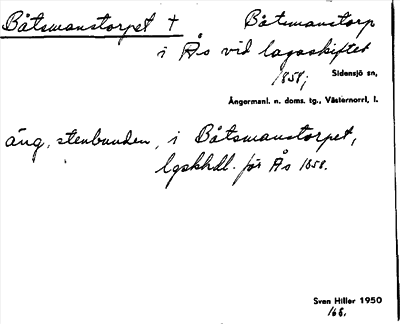 Båtsmanstorpet † Båtsmanstorp
i Ås vid lagaskiftet
1858; Sidensjö sn,
Ångermanl. n. doms. tg., Västernorrl. l.
äng, stenbunden, i Båtsmanstorpet,
lgskhdl. för Ås 1858.
Sven Hiller 1950
168.